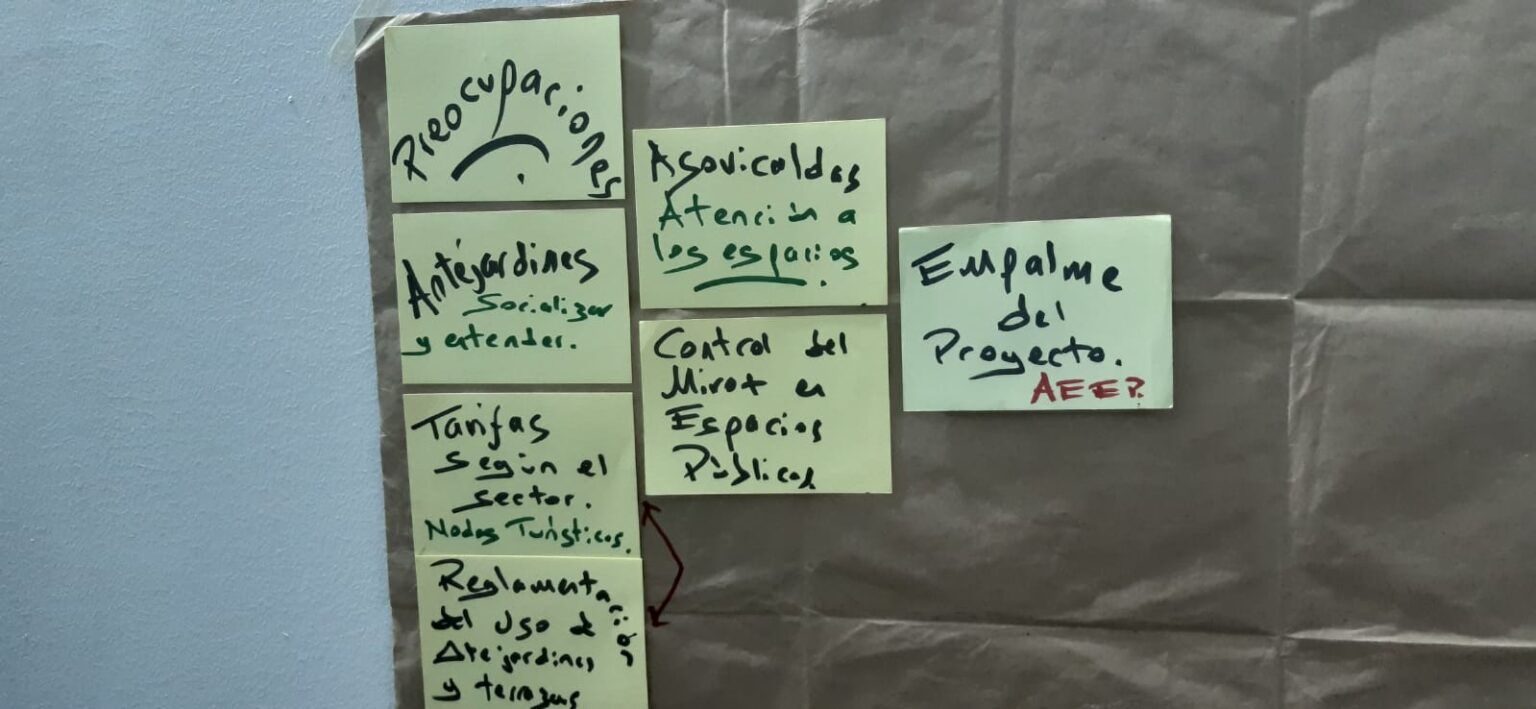 Preocupaciones
Antejardines
Socializar
y entender.
Tarifas
según el
sector.
Nodos Turísticos.
Reglamentación
del uso de
Atejardines
y terrazas
Asovicaldas
Atención a
los espacios.
Control del
en
Espacios
Públicos
Empalme
del
Proyecto.
AEEP.